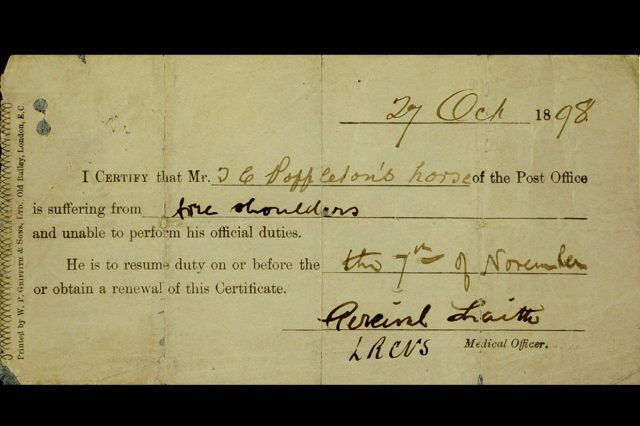 27 Oct 1898
I CERTIFY that Mr. J E Poppleton's horse of the Post Office
is suffering from sore shoulders
and unable to perform his official duties.
He is to resume duty on or before the the 7th of November
or obtain a renewal of this Certificate.
Percival
LRCVS Medical Officer.
Printed by W. P. GRIFFITH & SONS, LTD. Old Bailey, London, E.C.